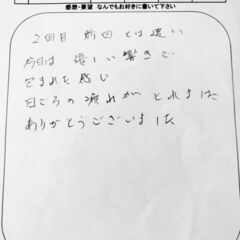 感想・要望 なんでもお好きに書いて下さい
2回目 前回とは違い
今回は、優しい響きで
包まれた感じ
日ごろの疲れがとれました
ありがとうございました